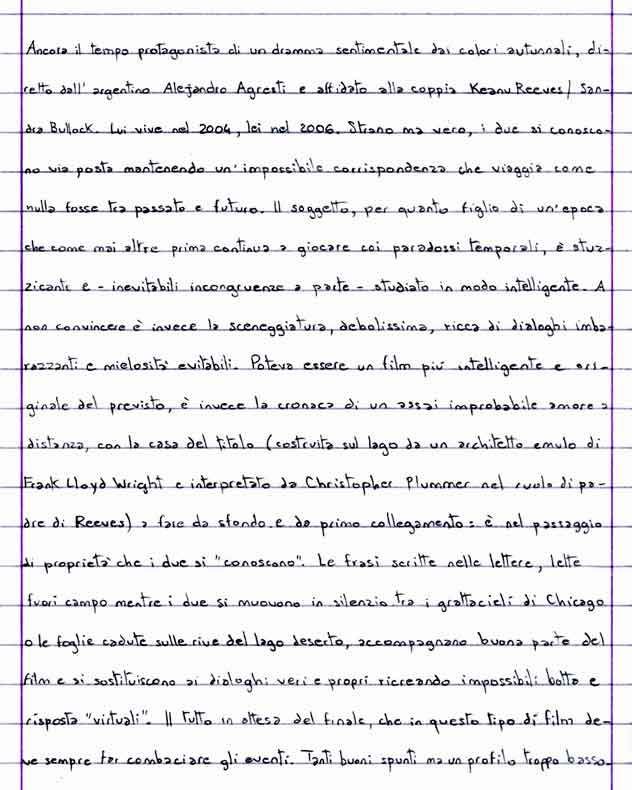 Ancora il tempo protagonista di un dramma sentimentale dai colori autunnali, di-
retto dall'argentino Alejandro Agresti e affidato alla coppia Keanu Reeves/San-
dra Bullock. Lui vive nel 2004, lei nel 2006. Strano ma vero, i due si conosco-
no via posta mantenendo un'impossibile corrispondenza che viaggia come
nulla fosse tra passato e futuro. Il soggetto, per quanto figlio di un'epoca
che come mai altre prima continua a giocare coi paradossi temporali, è stuz-
zicante e - inevitabili incongruenze a parte - studiato in modo intelligente. A
non convincere è invece la sceneggiatura, debolissima, ricca di dialoghi imba-
razzanti e mielosità evitabili. Poteva essere un film più intelligente e ori-
ginale del previsto, è invece la cronaca di un assai improbabile amore a
distanza, con la casa del titolo (costruita sul lago da un architetto emulo di
Frank Lloyd Wright e interpretato da Christopher Plummer nel ruolo di pa-
dre di Reeves) a fare da sfondo e da primo collegamento: è nel passaggio
di proprietà che i due si "conoscono". Le frasi scritte nelle lettere, lette
fuori campo mentre i due si muovono in silenzio tra i grattacieli di Chicago
o le foglie cadute sulle rive del lago deserto, accompagnano buona parte del
film e si sostituiscono ai dialoghi veri e propri ricreando impossibili botta e
risposta "virtuali". Il tutto in attesa del finale, che in questo tipo di film de-
ve sempre far combaciare gli eventi. Tanti buoni spunti ma un profilo troppo basso.